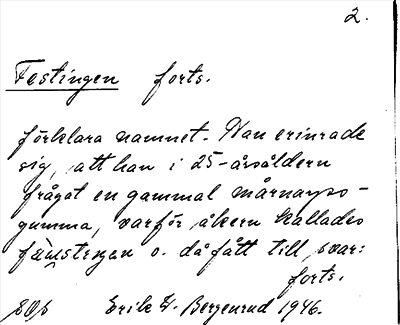 2.
Festingen forts.
förklara namnet. Han erinrade
sig, att han i 25-årsåldern
frågat en gammal mårnarps-
gumma, varför åkern kallades
fämstngen o. då fått till svar:
forts.
Erik W. Bergenrud 1946.